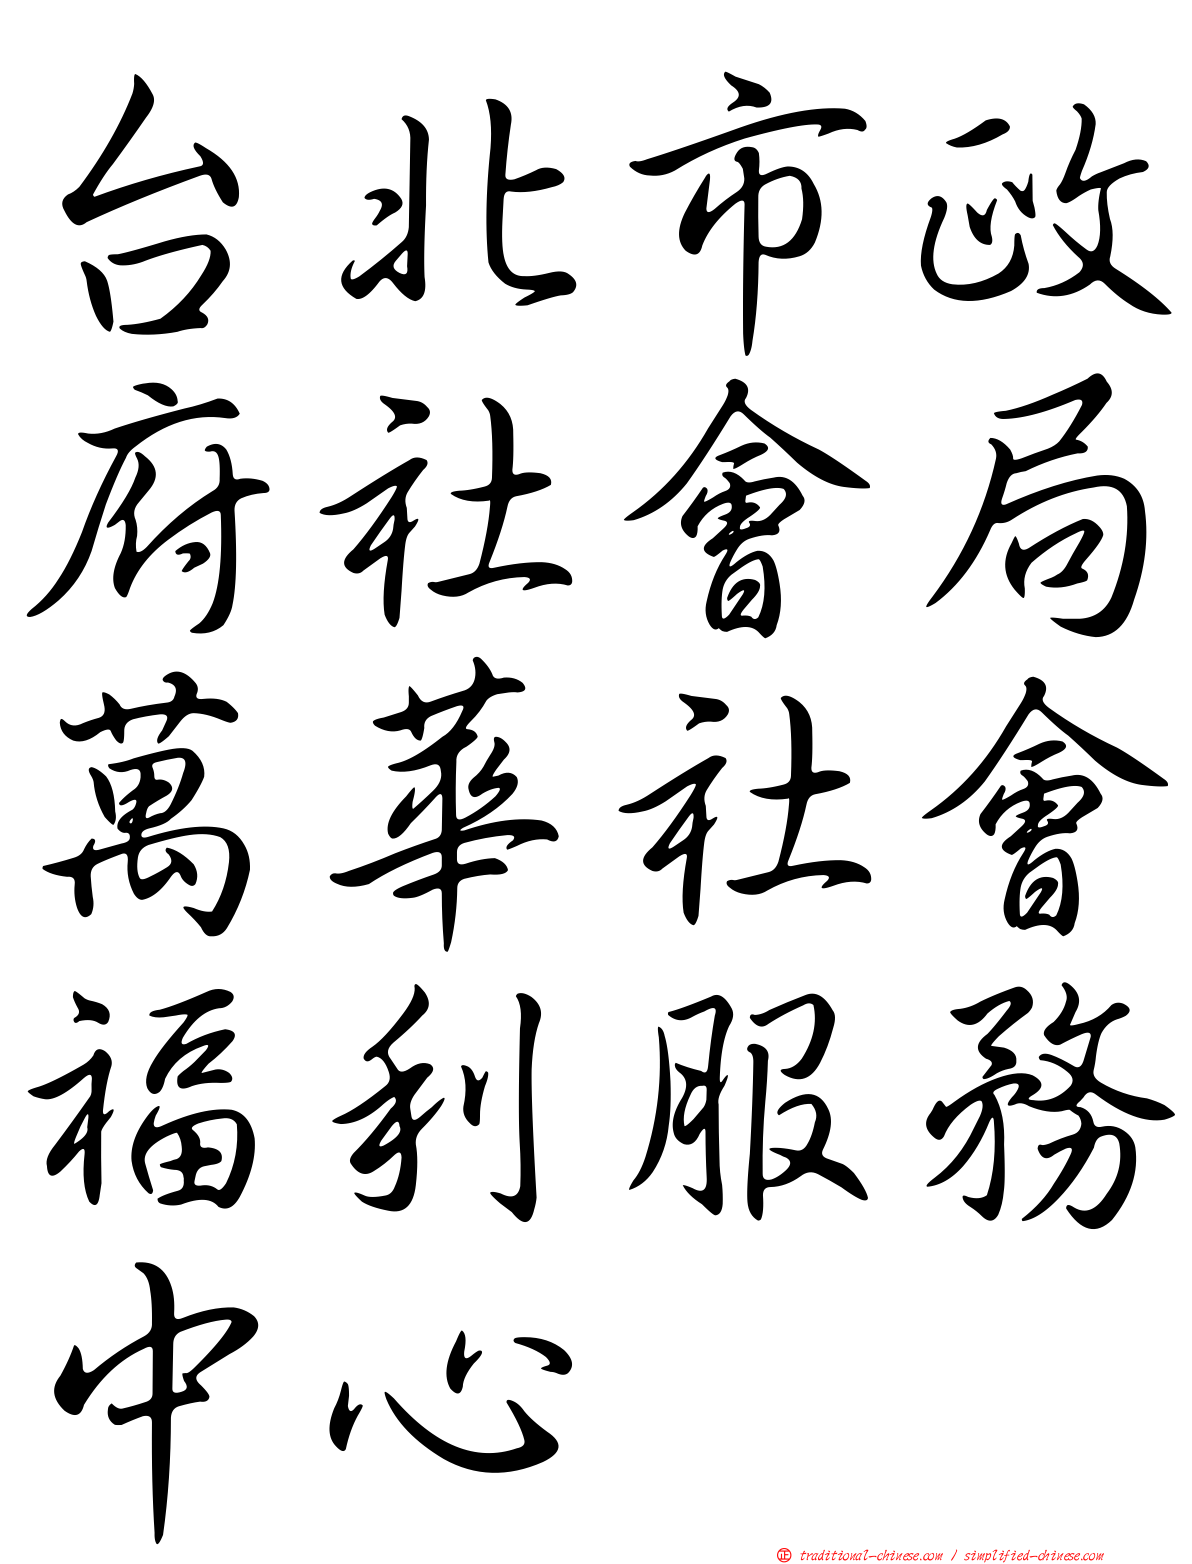 台北市政
府社會局
萬華社會
福利服務
中心
正 traditional-chinese.com / simplified-chinese.com